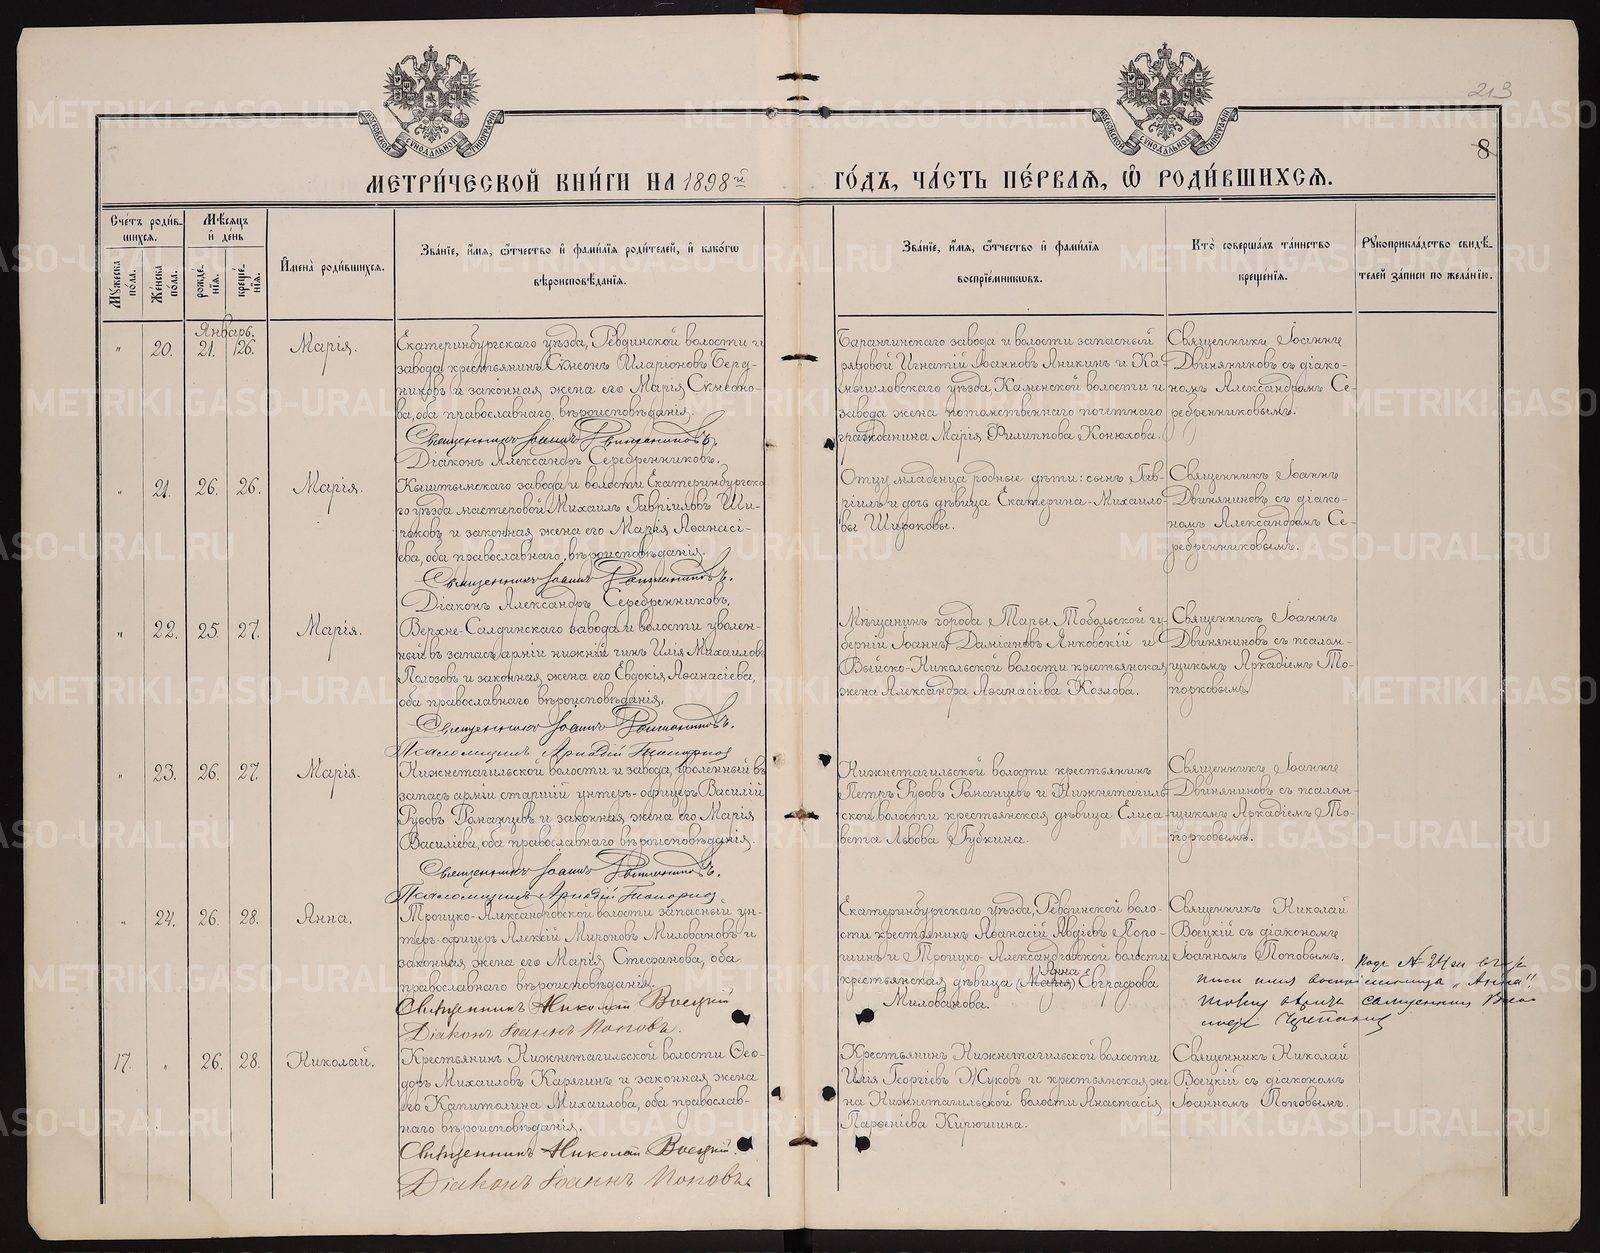 213
8
МОСКОВСКОЙ СѴНОДАЛЬНОЙ ТИПОГРАФІИ
МОСКОВСКОЙ СѴНОДАЛЬНОЙ ТИПОГРАФІИ
МЕТРИ́ЧЕСКОЙ КНИ́ГИ НА 1898й
ГО́ДЪ, ЧА́СТЬ ПЕ́РВАЯ, Ѽ РОДИ́ВШИХСЯ.
Сче́тъ роди́в-
шихся.
Мꙋжеска по́ла.
Же́нска по́ла.
Мѣ́сяцъ
и́ де́нь
рожде́нїя.
креще́нїя.
И҆мена̀ роди́вшихся.
Зва́нїе, и҆́мя, ѻ҆́тчество и҆ фами́лїя роди́телей, и҆ како́гѡ
вѣроисповѣ́данїя.
Зва́нїе, и҆́мя, ѻ҆́тчество и҆ фами́лїя
воспрїе́мникѡвъ.
Кто̀ соверша́лъ та́инство
креще́нїя.
Рꙋкоприкла́дство свидѣ́-
телей за́писи по жела́нїю.
Январь.
" 20. 21. 26. Марія.
Екатеринбургскаго уѣзда, Ревдинской волости и
завода крестьянинъ Сѵмеонъ Иларіоновъ Берд-
никовъ и законная жена его Марія Сѵмеоно-
ва, оба православнаго вѣроисповѣданія.
Священникъ Іоаннъ Двиняниновъ.
Діаконъ Александръ Серебренниковъ.
Баранчинскаго завода и волости запасный
рядовой Игнатій Іоанновъ Аникинъ и Ка-
мышловскаго уѣзда, Каменской волости и
завода жена потомственнаго почетнаго
гражданина Марія Филиппова Конюхова.
Священникъ Іоаннъ
Двиняниновъ съ діако-
номъ Александромъ Се-
ребренниковымъ.
" 21. 26. 26. Марія.
Кыштымскаго завода и волости Екатеринбургска-
го уѣзда мастеровой Михаилъ Гавріиловъ Ши-
роковъ и законная жена его Марія Аѳанасі-
ева, оба православнаго вѣроисповѣданія.
Священникъ Іоаннъ Двиняниновъ.
Діаконъ Александръ Серебренниковъ.
Отцу младенца родные дѣти: сынъ Гав-
ріилъ и дочь дѣвица Екатерина Михаило-
вы Широковы.
Священникъ Іоаннъ
Двиняниновъ съ діако-
номъ Александромъ Се-
ребренниковымъ.
" 22. 25. 27. Марія.
Верхне-Салдинскаго завода и волости уволен-
ный въ запасъ арміи нижній чинъ Илія Михаиловъ
Полозовъ и законная жена его Евдокія Аѳанасіева,
оба православнаго вѣроисповѣданія.
Священникъ Іоаннъ Двиняниновъ.
Псаломщикъ Аркадій Топорковъ
Мѣщанинъ города Тары Тобольской гу-
берніи Іоаннъ Даміановъ Янковскій и
Выйско-Никольской волости крестьянская
жена Александра Аѳанасіева Козлова.
Священникъ Іоаннъ
Двиняниновъ съ псалом-
щикомъ Аркадіемъ То-
порковымъ.
" 23. 26. 27. Марія.
Нижнетагильской волости и завода, уволенный въ
запасъ арміи старшій унтеръ-офицеръ Василій
Руфовъ Романцевъ и законная жена его Марія
Василіева, оба православнаго вѣроисповѣданія.
Священникъ Іоаннъ Двиняниновъ.
Псаломщикъ Аркадій Топорковъ
Нижнетагильской волости крестьянинъ
Петръ Руфовъ Романцевъ и Нижнетагиль-
ской волости крестьянская дѣвица Елиса-
вета Львова Губкина.
Священникъ Іоаннъ
Двиняниновъ съ псалом-
щикомъ Аркадіемъ То-
порковымъ.
" 24. 26. 28. Анна.
Троицко-Александровской волости запасный ун-
теръ-офицеръ Алексій Мироновъ Миловановъ и
законная жена его Марія Стефанова, оба
православнаго вѣроисповѣданія.
Священникъ Николай Воецкій
Діаконъ Іоаннъ Поповъ.
Екатеринбургскаго уѣзда, Ревдинской воло-
сти крестьянинъ Аѳанасій Авдіевъ Поро-
шинъ и Троицко-Александровской волости
крестьянская дѣвица (Марія) Анна Евграфова
Милованова.
Священникъ Николай
Воецкій съ діакономъ
Іоанномъ Поповымъ.
Подъ № 24
имя "Анна"
17. " 26. 28. Николай.
Крестьянинъ Нижнетагильской волости Ѳео-
доръ Михаиловъ Карягинъ и законная жена
его Капитолина Михаилова, оба православ-
наго вѣроисповѣданія.
Священникъ Николай Воецкій.
Діаконъ Іоаннъ Поповъ.
Крестьянинъ Нижнетагильской волости
Илія Георгіевъ Жуковъ и крестьянская же-
на Нижнетагильской волости Анастасія
Парѳеніева Кирюшина.
Священникъ Николай
Воецкій съ діакономъ
Іоанномъ Поповымъ.
METRIKI.GASO-URAL.RU